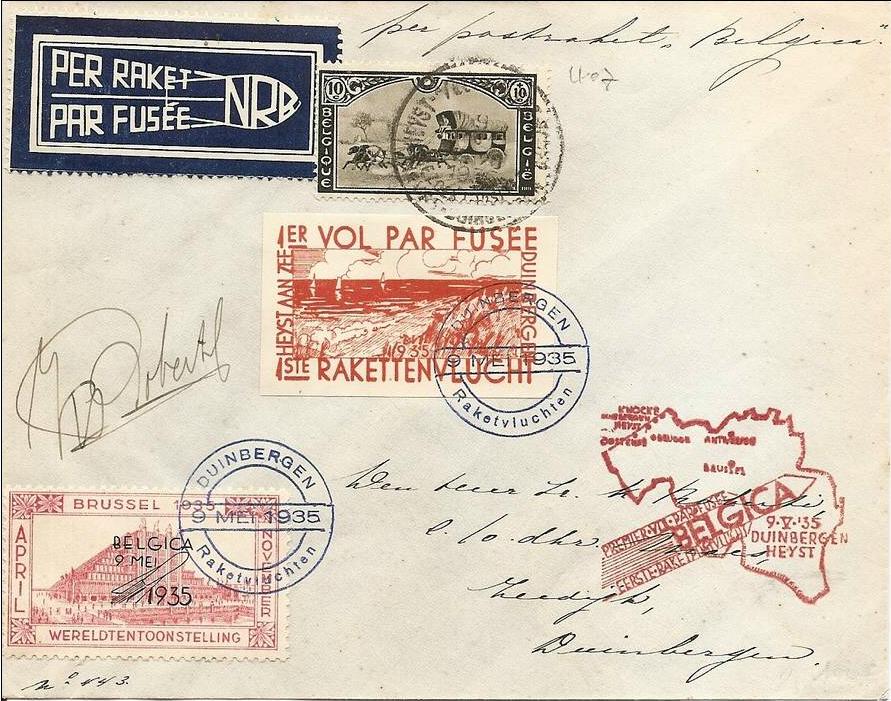 per postraket „Belgica".
PER RAKET
PAR FUSÉE
NRB
10 10
BELGIQUE
BELGIË
1ER VOL PAR FUSÉE
HEYST AAN ZEE
DUINBERGEN
1935
1STE RAKETTENVLUCHT
DUINBERGEN
9 MEI 1935
Raketvluchten
DUINBERGEN
9 MEI 1935
Raketvluchten
BRUSSEL 1935
APRIL
NOVEMBER
BELGICA
9 MEI
1935
WERELDTENTOONSTELLING
KNOCKE
DUINBERGEN
HEYST
OOSTENDE BRUGGE ANTWERPEN
BRUSSEL
PREMIER VOL PAR FUSÉE
BELGICA
EERSTE RAKETPOSTVLUCHT
9-V-'35
DUINBERGEN
HEYST
Den Heer
Zeedijk,
Duinbergen.
No 443.